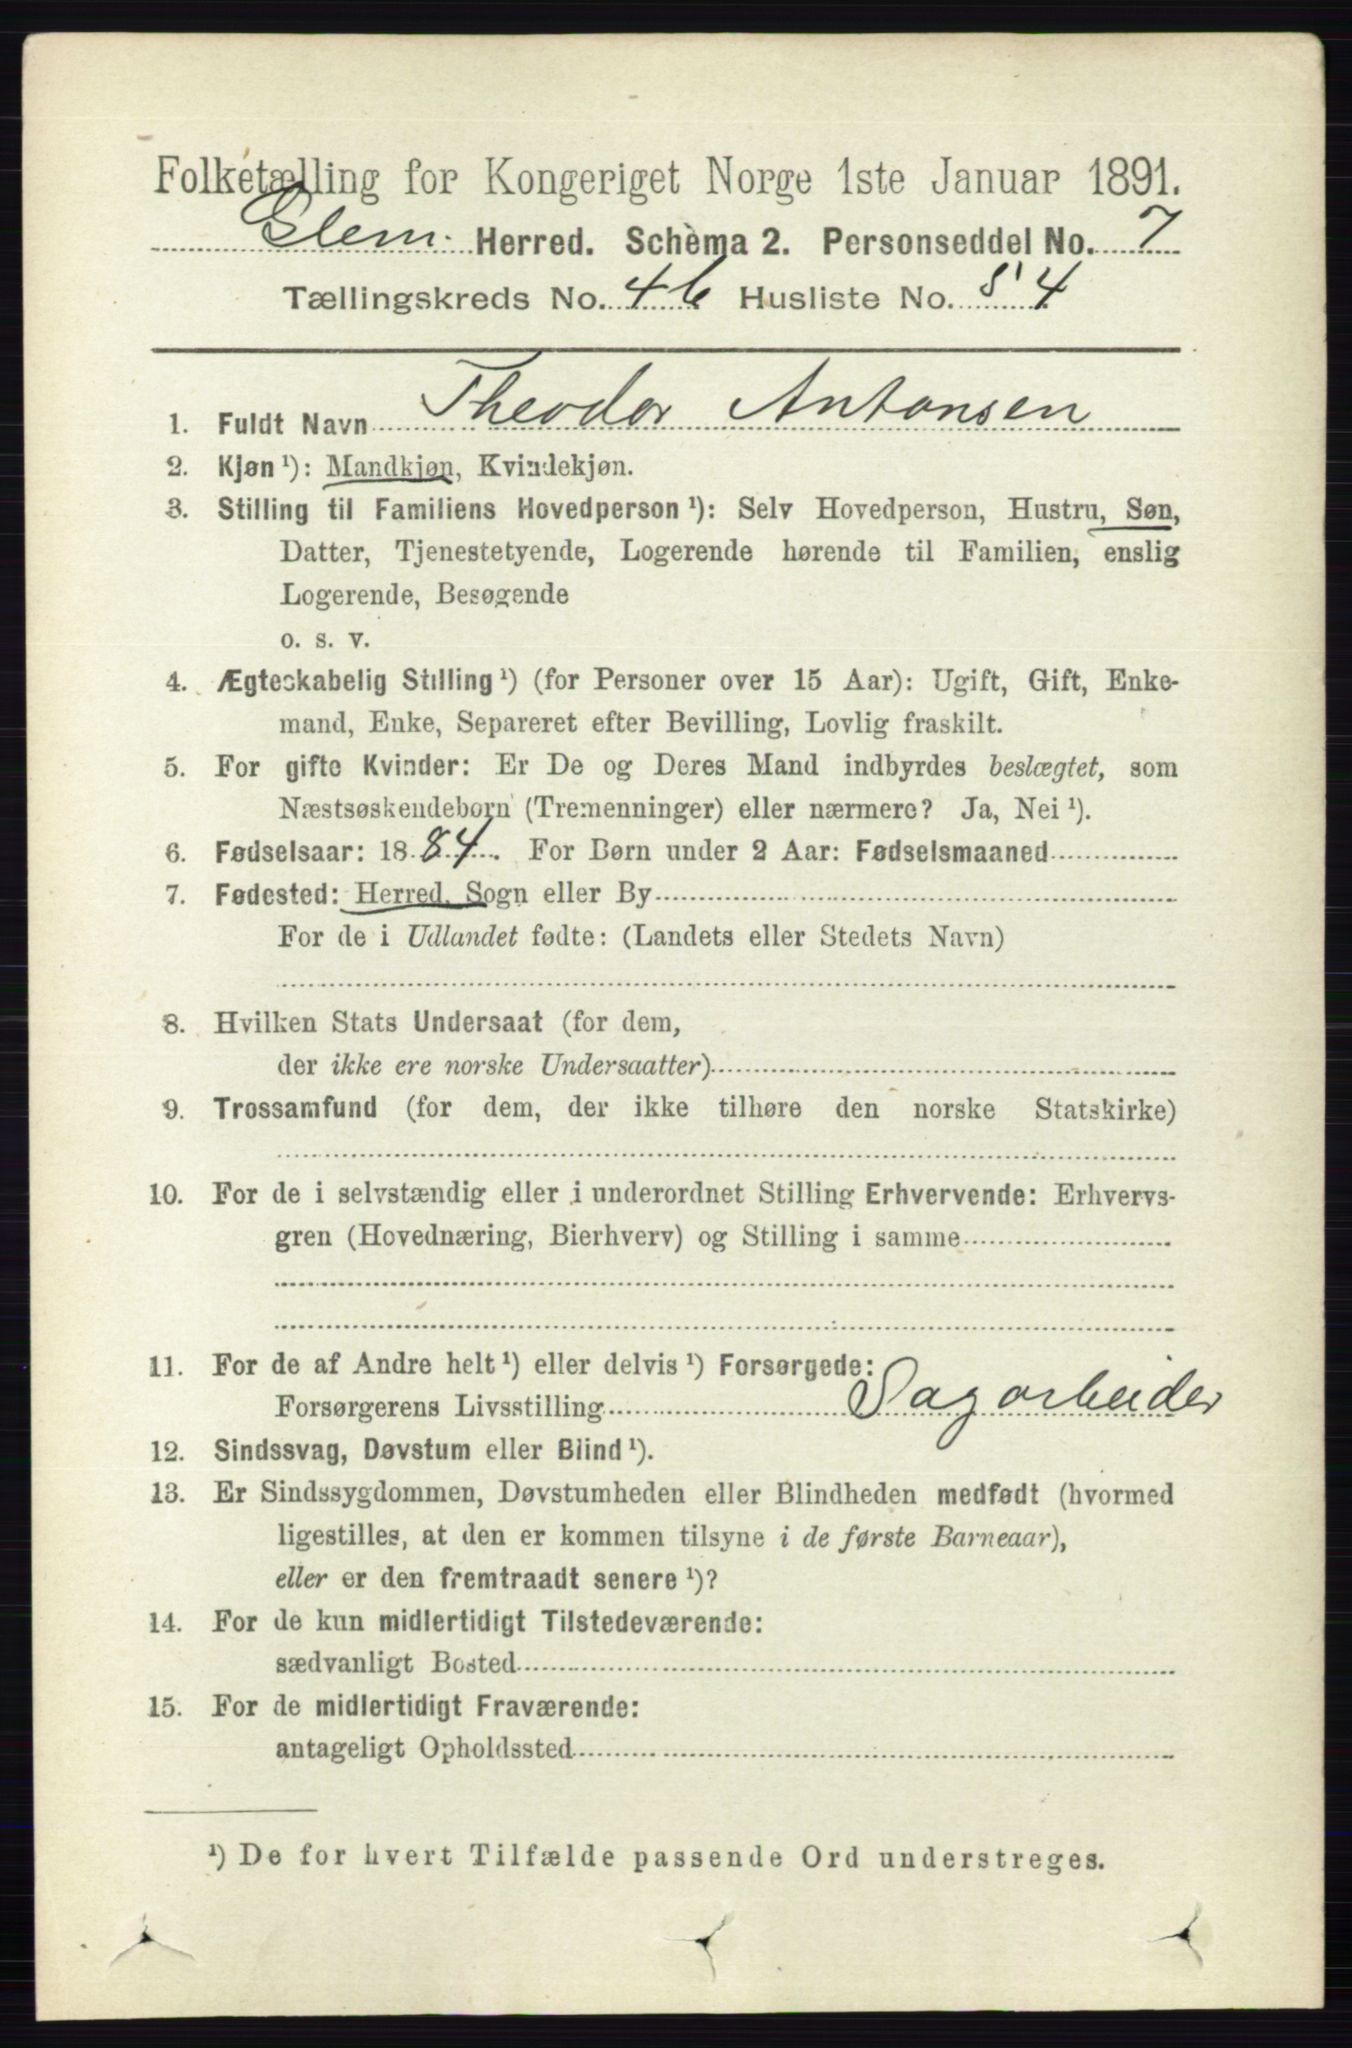 Folketælling for Kongeriget Norge 1ste Januar 1891.
Glem. Herred. Schema 2. Personseddel No. 7
Tællingskreds No. 4 b Husliste No. 54
1. Fuldt Navn Theodor Antonsen
2. Kjøn ¹): Mandkjøn, Kvindekjøn.
3. Stilling til Familiens Hovedperson ¹): Selv Hovedperson, Hustru, Søn,
Datter, Tjenestetyende, Logerende hørende til Familien, enslig
Logerende, Besøgende
o. s. v.
4. Ægteskabelig Stilling ¹) (for Personer over 15 Aar): Ugift, Gift, Enke-
mand, Enke, Separeret efter Bevilling, Lovlig fraskilt.
5. For gifte Kvinder: Er De og Deres Mand indbyrdes beslægtet, som
Næstsøskendebørn (Tremenninger) eller nærmere? Ja, Nei ¹).
6. Fødselsaar: 1884. For Børn under 2 Aar: Fødselsmaaned
7. Fødested: Herred, Sogn eller By
For de i Udlandet fødte: (Landets eller Stedets Navn)
8. Hvilken Stats Undersaat (for dem,
der ikke ere norske Undersaatter)
9. Trossamfund (for dem, der ikke tilhøre den norske Statskirke)
10. For de i selvstændig eller i underordnet Stilling Erhvervende: Erhvervs-
gren (Hovednæring, Bierhverv) og Stilling i samme
11. For de af Andre helt ¹) eller delvis ¹) Forsørgede:
Forsørgerens Livsstilling Sagarbeider
12. Sindssvag, Døvstum eller Blind ¹).
13. Er Sindssygdommen, Døvstumheden eller Blindheden medfødt (hvormed
ligestilles, at den er kommen tilsyne i de første Barneaar),
eller er den fremtraadt senere ¹)?
14. For de kun midlertidigt Tilstedeværende:
sædvanligt Bosted
15. For de midlertidigt Fraværende:
antageligt Opholdssted
¹) De for hvert Tilfælde passende Ord understreges.